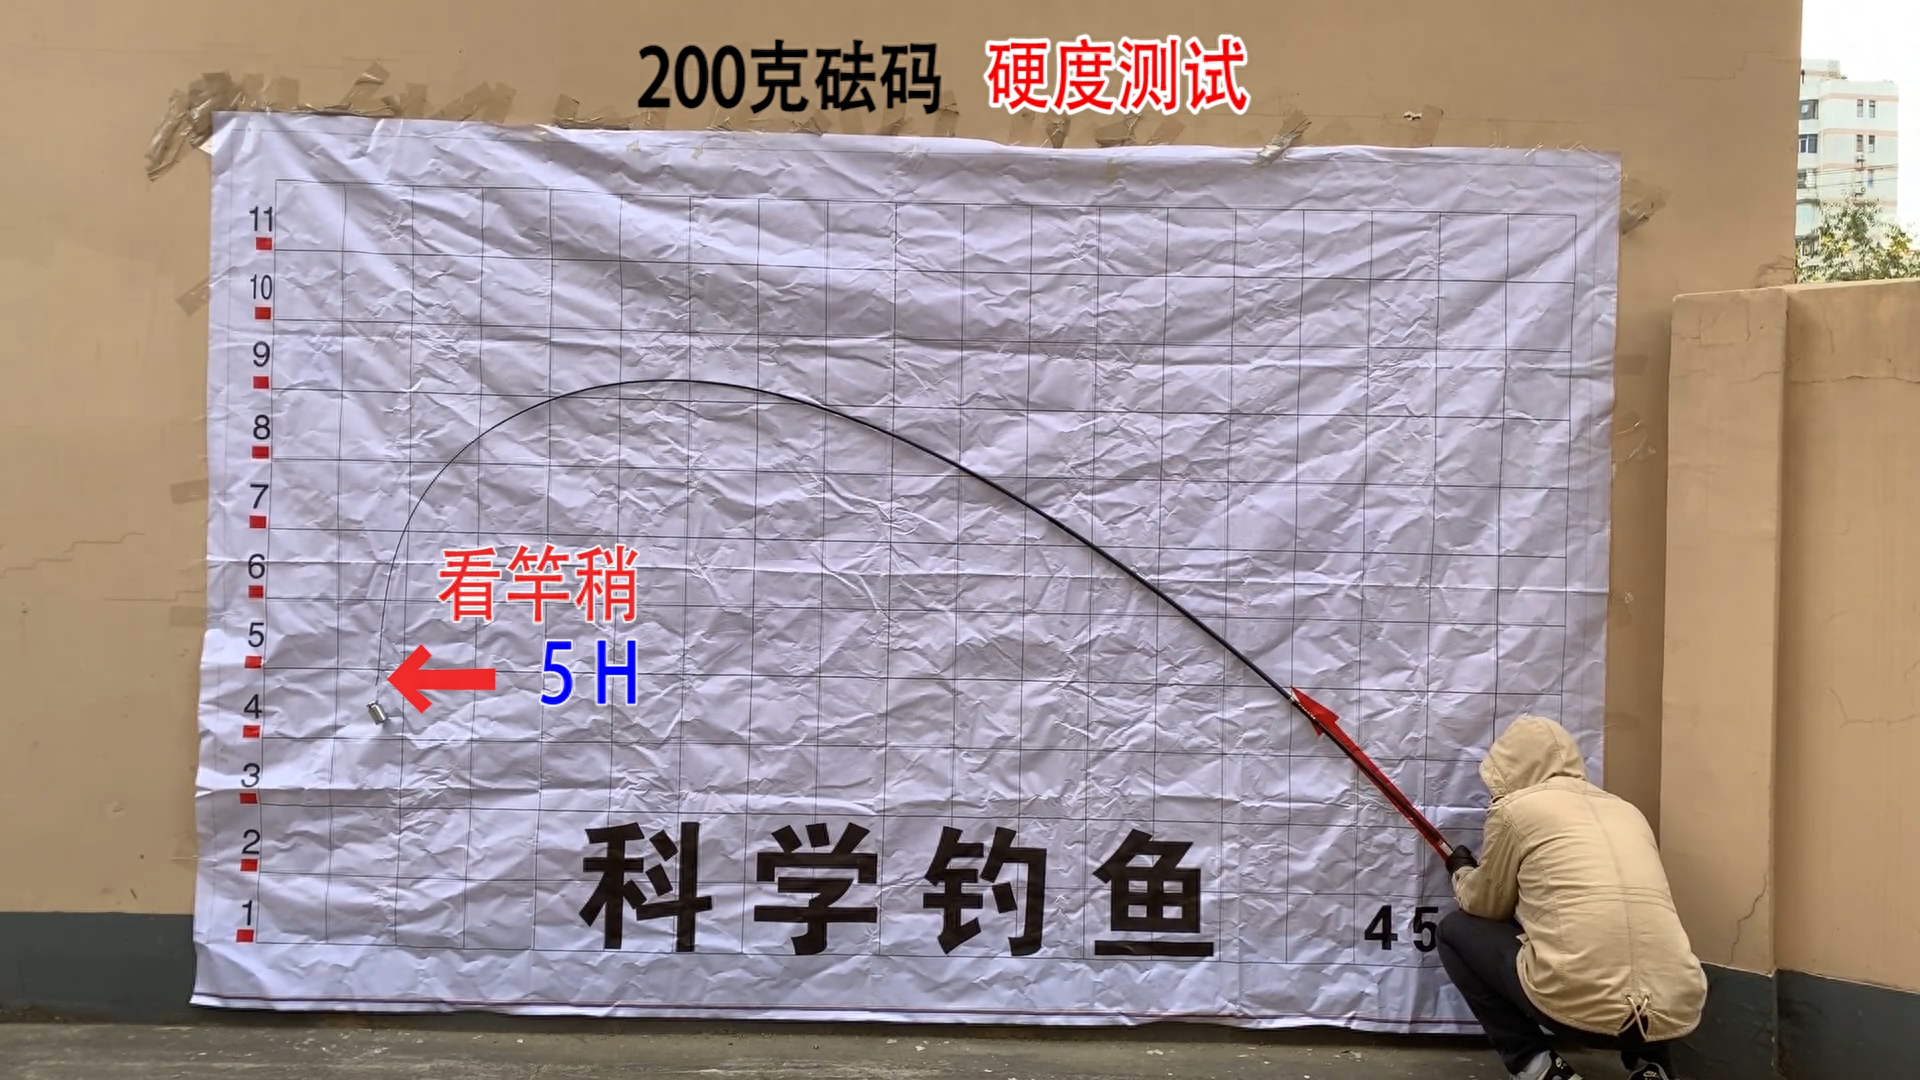 200克砝码 硬度测试
11
10
9
8
7
6
5
4
3
2
1
看竿稍
5H
科学钓鱼
45